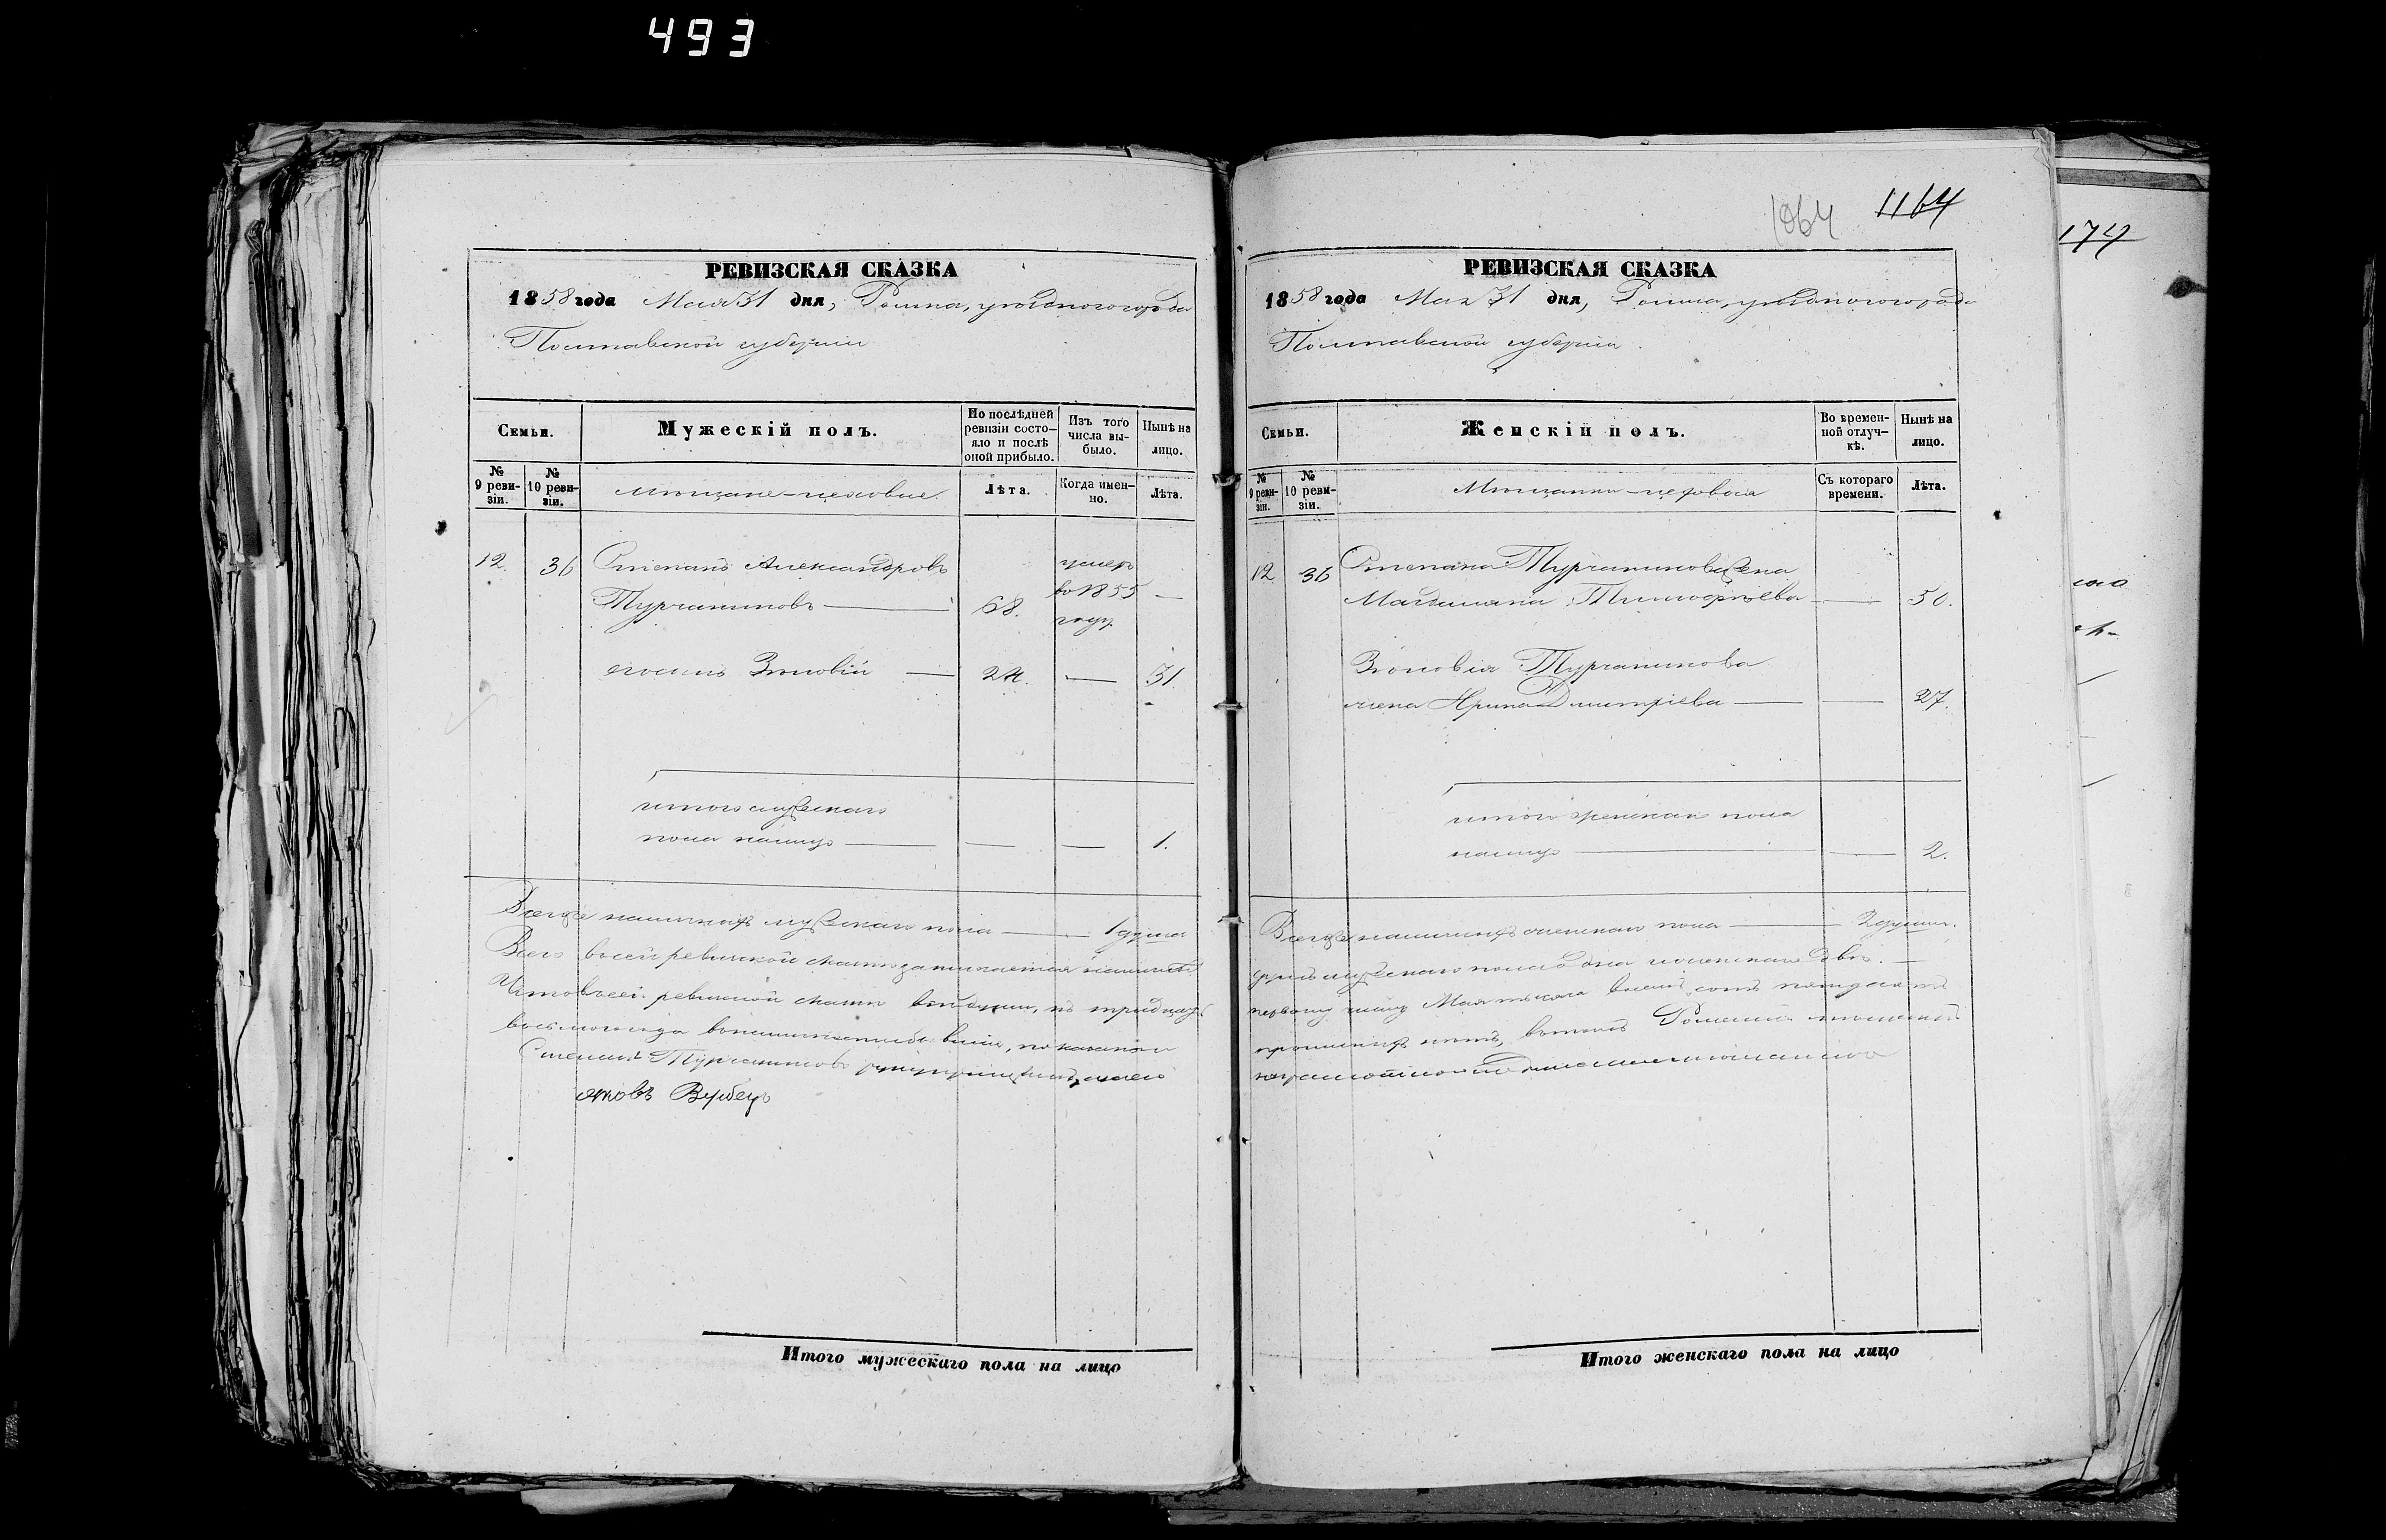 493
РЕВИЗСКАЯ СКАЗКА
1858 года Мая 31 дня, Ромна, уѣзднаго города
Полтавской губерніи
Семьи.
Мужескій полъ.
По послѣдней ревизіи состояло и послѣ оной прибыло.
Изъ того числа выбыло.
Нынѣ на лицо.
№ 9 ревизіи.
№ 10 ревизіи.
мѣщане-цеховые.
Лѣта.
Когда именно.
Лѣта.
12. 36 Степанъ Александровъ
Турчаниновъ — 68. умеръ во 1855 году —
его сынъ Зѣновій — 24. — 31
итого мужескаго
пола налицо — — — 1.
Всего же наличныхъ мужескаго пола — 1 душа
Всего в сей ревизской сказкѣ заключается наличныхъ
Что въ сей ревизской сказкѣ всѣ души, къ тридцать
восьмого года
Степанъ Турчаниновъ
Яковъ Вербец
1064 1164
РЕВИЗСКАЯ СКАЗКА
1858 года Мая 31 дня, Ромна, уѣзднаго города
Полтавской губерніи.
Семьи.
Женскій полъ.
Во временной отлучкѣ.
Нынѣ на лицо.
№ 9 ревизіи.
№ 10 ревизіи.
Мѣщанки-цеховыя
Съ котораго времени.
Лѣта.
12 36 Степана Турчанинова жена
Магдалина Тимофѣева — — 50.
Зѣновія Турчанинова
жена Ирина Дмитріева — — 27.
итого женскаго пола
налицо — — 2.
Всего же наличныхъ женскаго пола — 2 души.
душъ мужескаго пола одна и женскаго двѣ. —
первому числу Мая тысяча восемъ сотъ пятдесятъ
прописныхъ нѣтъ, въ томъ Роменскій мѣщанинъ
174
Итого мужескаго пола на лицо
Итого женскаго пола на лицо